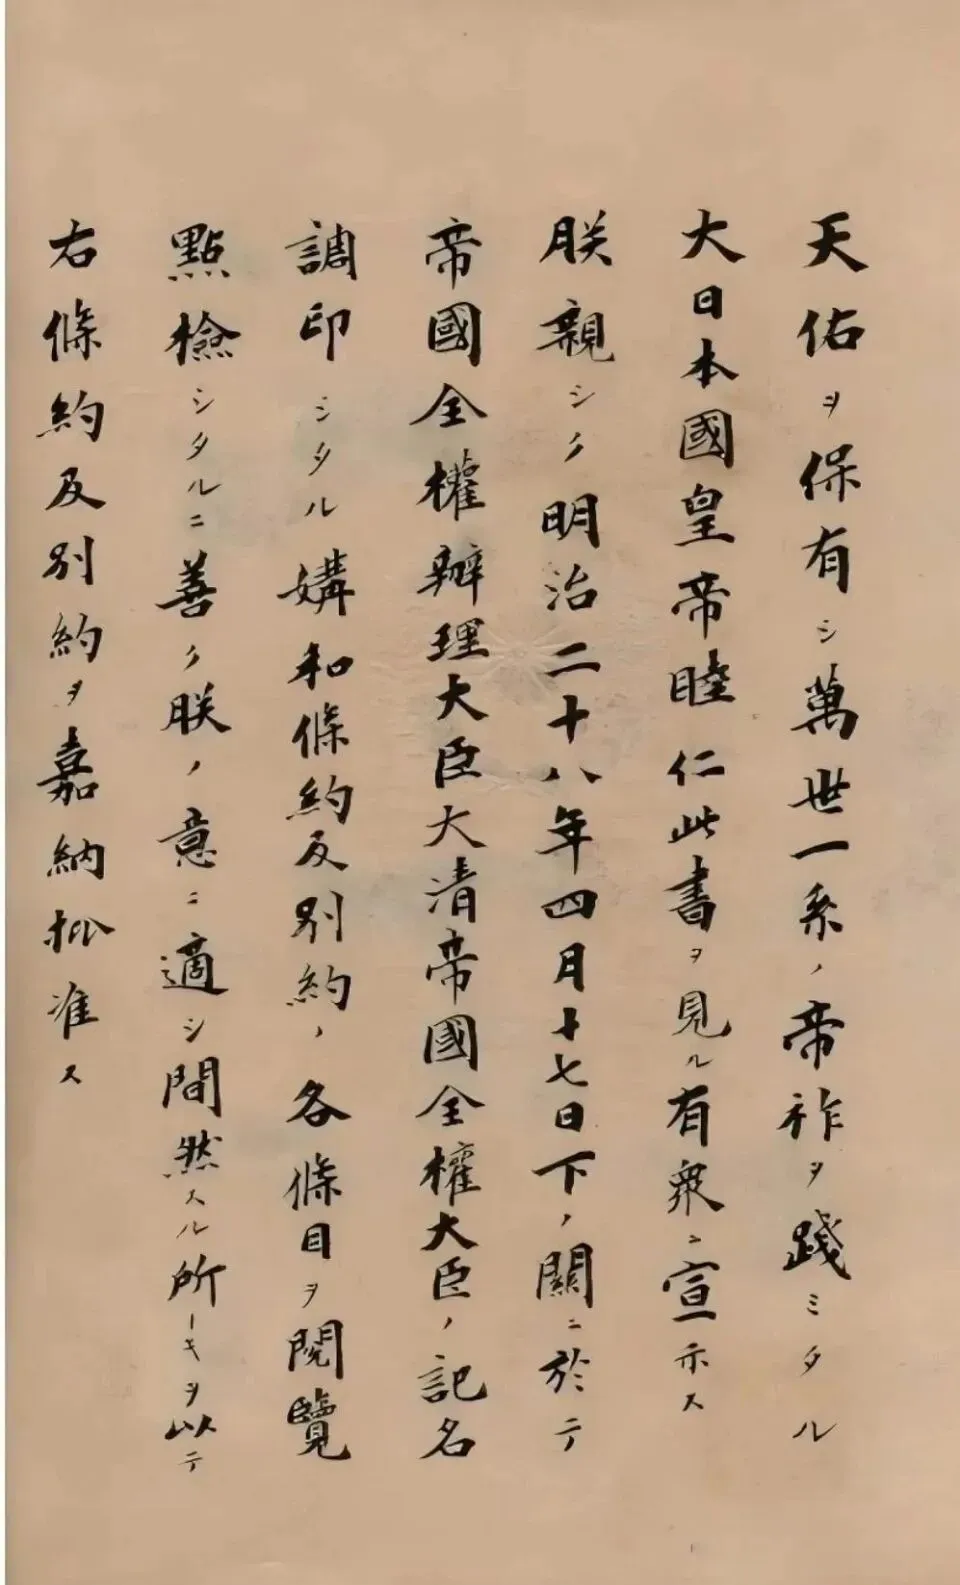 天佑ヲ保有シ萬世一系ノ帝祚ヲ踐ミタル
大日本國皇帝睦仁此書ヲ見ル有衆ニ宣示ス
朕親シク明治二十八年四月十七日下ノ關ニ於テ
帝國全權辦理大臣大清帝國全權大臣ノ記名
調印シタル媾和條約及別約ノ各條目ヲ閱覽
點檢シタルニ善ク朕ノ意ニ適シ間然スル所ーキヲ以テ
右條約及別約ヲ嘉納批准ス